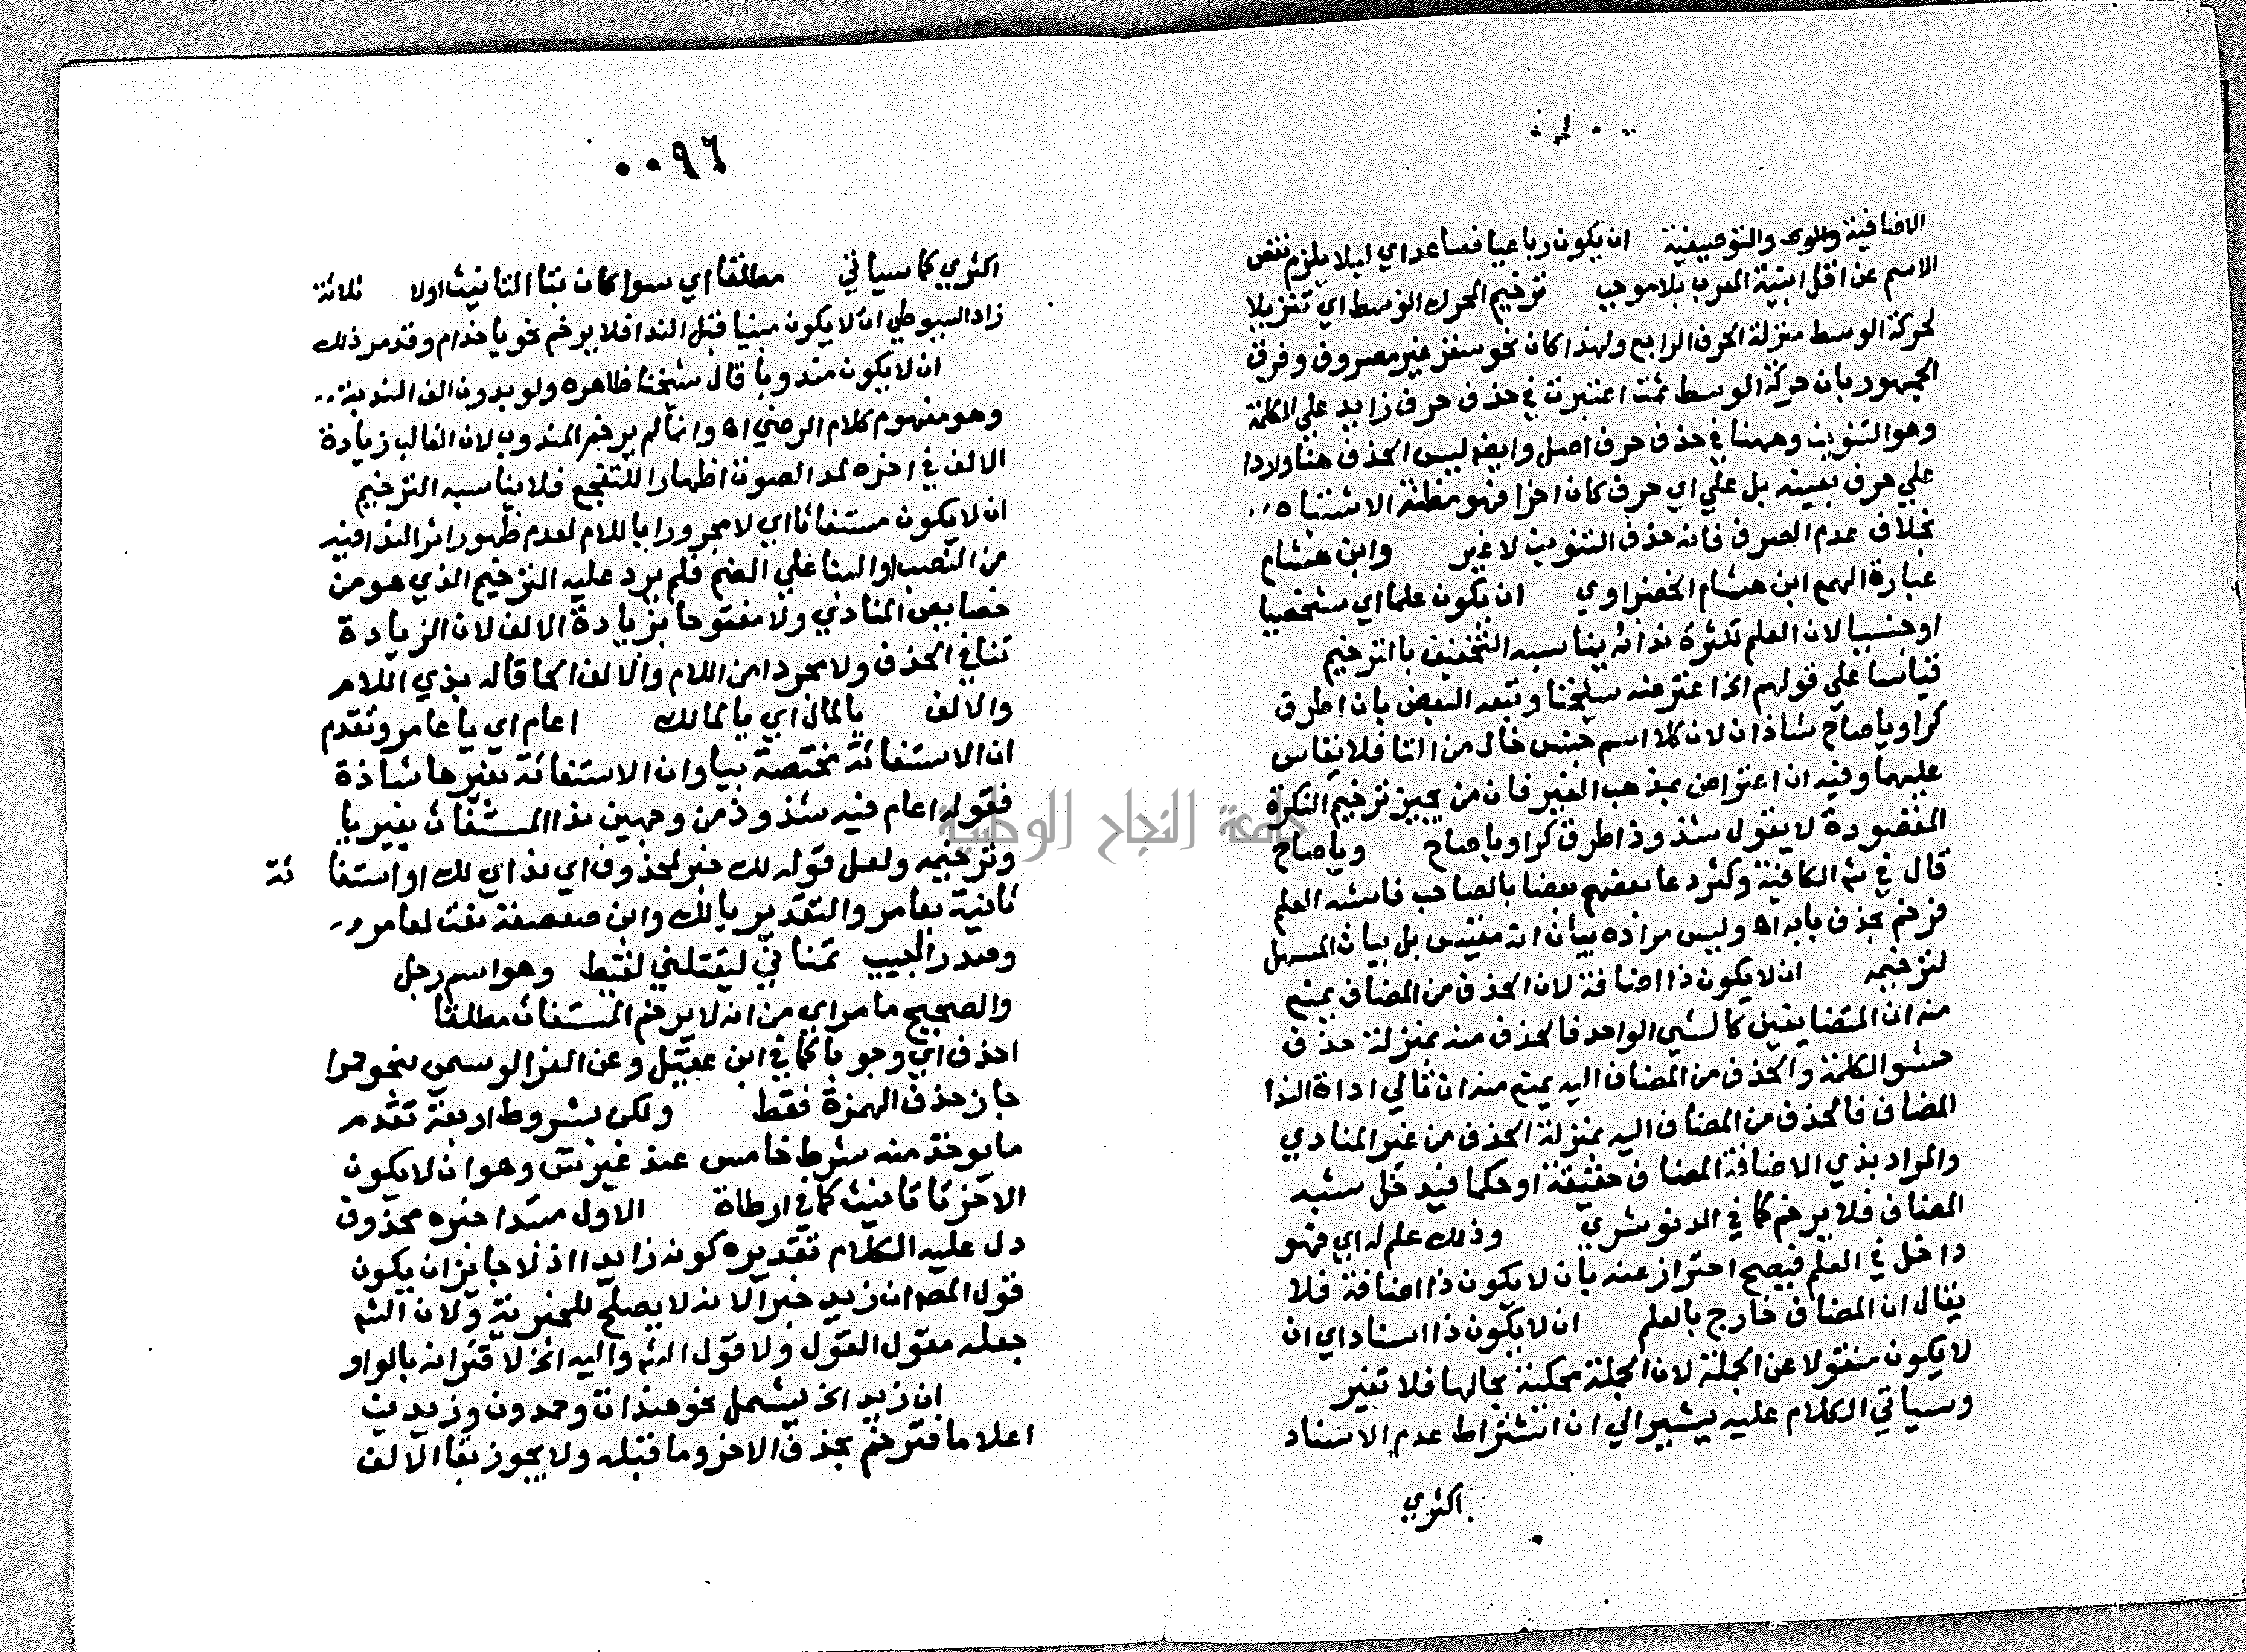 الاضافية والمو والتوصيفية ان يكون رباعيا فصاعدا اي ليلا يلزم نقص
الاسم عن اقل ابنية المعرب بلا موجب ترخيم المحرك الوسط اي تنزيلا
لحركة الوسط منزلة الحرف الرابع ولهذا كان نحو سقر غير مصروف وفرق
الجمهور بان حركة الوسط ثمت اعتبرت في حذف حرف زايد علي الكلمة
وهو التنوين وههنا في حذف حرف اصل وايضا ليس الحذف هنا واردا
علي حرف بعينه بل علي اي حرف كان اخرا فهو مظنة الاشتباه
بخلاف عدم الصرف فانه حذف التنوين لا غير وابن هشام
عبارة الهمع ابن هشام الخضراوي ان يكون علما اي شخصيا
او جنسيا لان العلم لكثرة ندائه يناسبه التخفيف بالترخيم
قياسا علي قولهم الخ اعترضه شيخنا وتبعه البعض بان اطرق
كرا ويا صاح شاذان لان كلا اسم جنس خال من التا فلا يقاس
عليهما وفيه ان اعتراض بمذهب الغير فان من يجيز ترخيم النكرة
المقصودة لا يقول بشذوذ اطرق كرا ويا صاح ويا صاح
قال في شم الكافية وكثر دعا بعضهم بعضا بالصاحب فاشبه العلم
فرخم بحذف بايه اه وليس مراده بيان انه مقيس بل بيان المسهل
لترخيمه ان لا يكون ذا اضافة لان الحذف من المضاف يمنع
منه ان المتضايفين كالشي الواحد فالحذف منه بمنزلة حذف
حشو الكلمة والحذف من المضاف اليه يمنع منه ان تالي اداة الندا
المضاف فالحذف من المضاف اليه بمنزلة الحذف من غير المنادي
والمراد بذي الاضافة المضاف حقيقة او حكما فيدخل شبه
المضاف فلا يرخم كما في الدنوشري وذلك علم له اي فهو
داخل في العلم فيصح احتراز عنه بان لا يكون ذا اضافة فلا
يقال ان المضاف خارج بالعلم ان لا يكون ذا اسناد اي ان
لا يكون منقولا عن الجملة لان الجملة محكية بحالها فلا تغير
وسياتي الكلام عليه يشير الي ان اشتراط عدم الاسناد
اكثري
٠٠٩٦
اكثري كما سياتي مطلقا اي سوا كان بتا التانيث اولا ثلاثة
زاد السيوطي ان لا يكون مبنيا قبل الندا فلا يرخم نحو يا حذام وقد مر ذلك
ان لا يكون مندوبا قال شيخنا ظاهره ولو بدون الف الندبة
وهو مفهوم كلام الرضي اه وانما لم يرخم المندوب لان الغالب زيادة
الالف في اخره لمد الصوت اظهارا للتفجع فلا يناسبه الترخيم
ان لا يكون مستغاثا اي لا مجرورا باللام لعدم ظهور اثر الندا فيه
من النصب او البنا علي الضم فلم يرد عليه الترخيم الذي هو من
خصايص المنادي ولا مفتوحا بزيادة الالف لان الزيادة
تنافي الحذف ولا مجردا من اللام والالف الحاقا له بذي اللام
والالف يالمال اي يا لمالك اعام اي يا عامر وتقدم
ان الاستغاثة مختصة بيا وان الاستغاثة بغيرها شاذة
فقوله اعام فيه شذوذ من وجهين ندا المستغاث بغير يا
وترخيمه ولعل قوله لك خبر لمحذوف اي ندائي لك او استغاثة
ثانية بعامر والتقدير يا لك وابن صعصعة نعت لعامر
وصدر البيت تمناني ليقتلني لقيط وهو اسم رجل
والصحيح ما مر اي من انه لا يرخم المستغاث مطلقا
احذف اي وجوبا كما في ابن عقيل وعن الفرا لو سمي بنحو حمرا
جاز حذف الهمزة فقط ولكن بشروط اربعة تقدم
ما يوخذ منه شرط خامس عند غير س وهو ان لا يكون
الاخر تا تانيث كما في ارطاة الاول مبتدا خبره محذوف
دل عليه الكلام تقديره كونه زايدا اذ لا جايز ان يكون
قول المص ان زيد خبرا لانه لا يصلح للخبرية ولان الشم
جعله مقول القول ولا قول الشم واليه الخ لاقترانه بالواو
ان زيد الخ يشمل نحو هندات وحمدون وزيدين
اعلاما فترخم بحذف الاخر وما قبله ولا يجوز بقا الالف
جامعة النجاح الوطنية